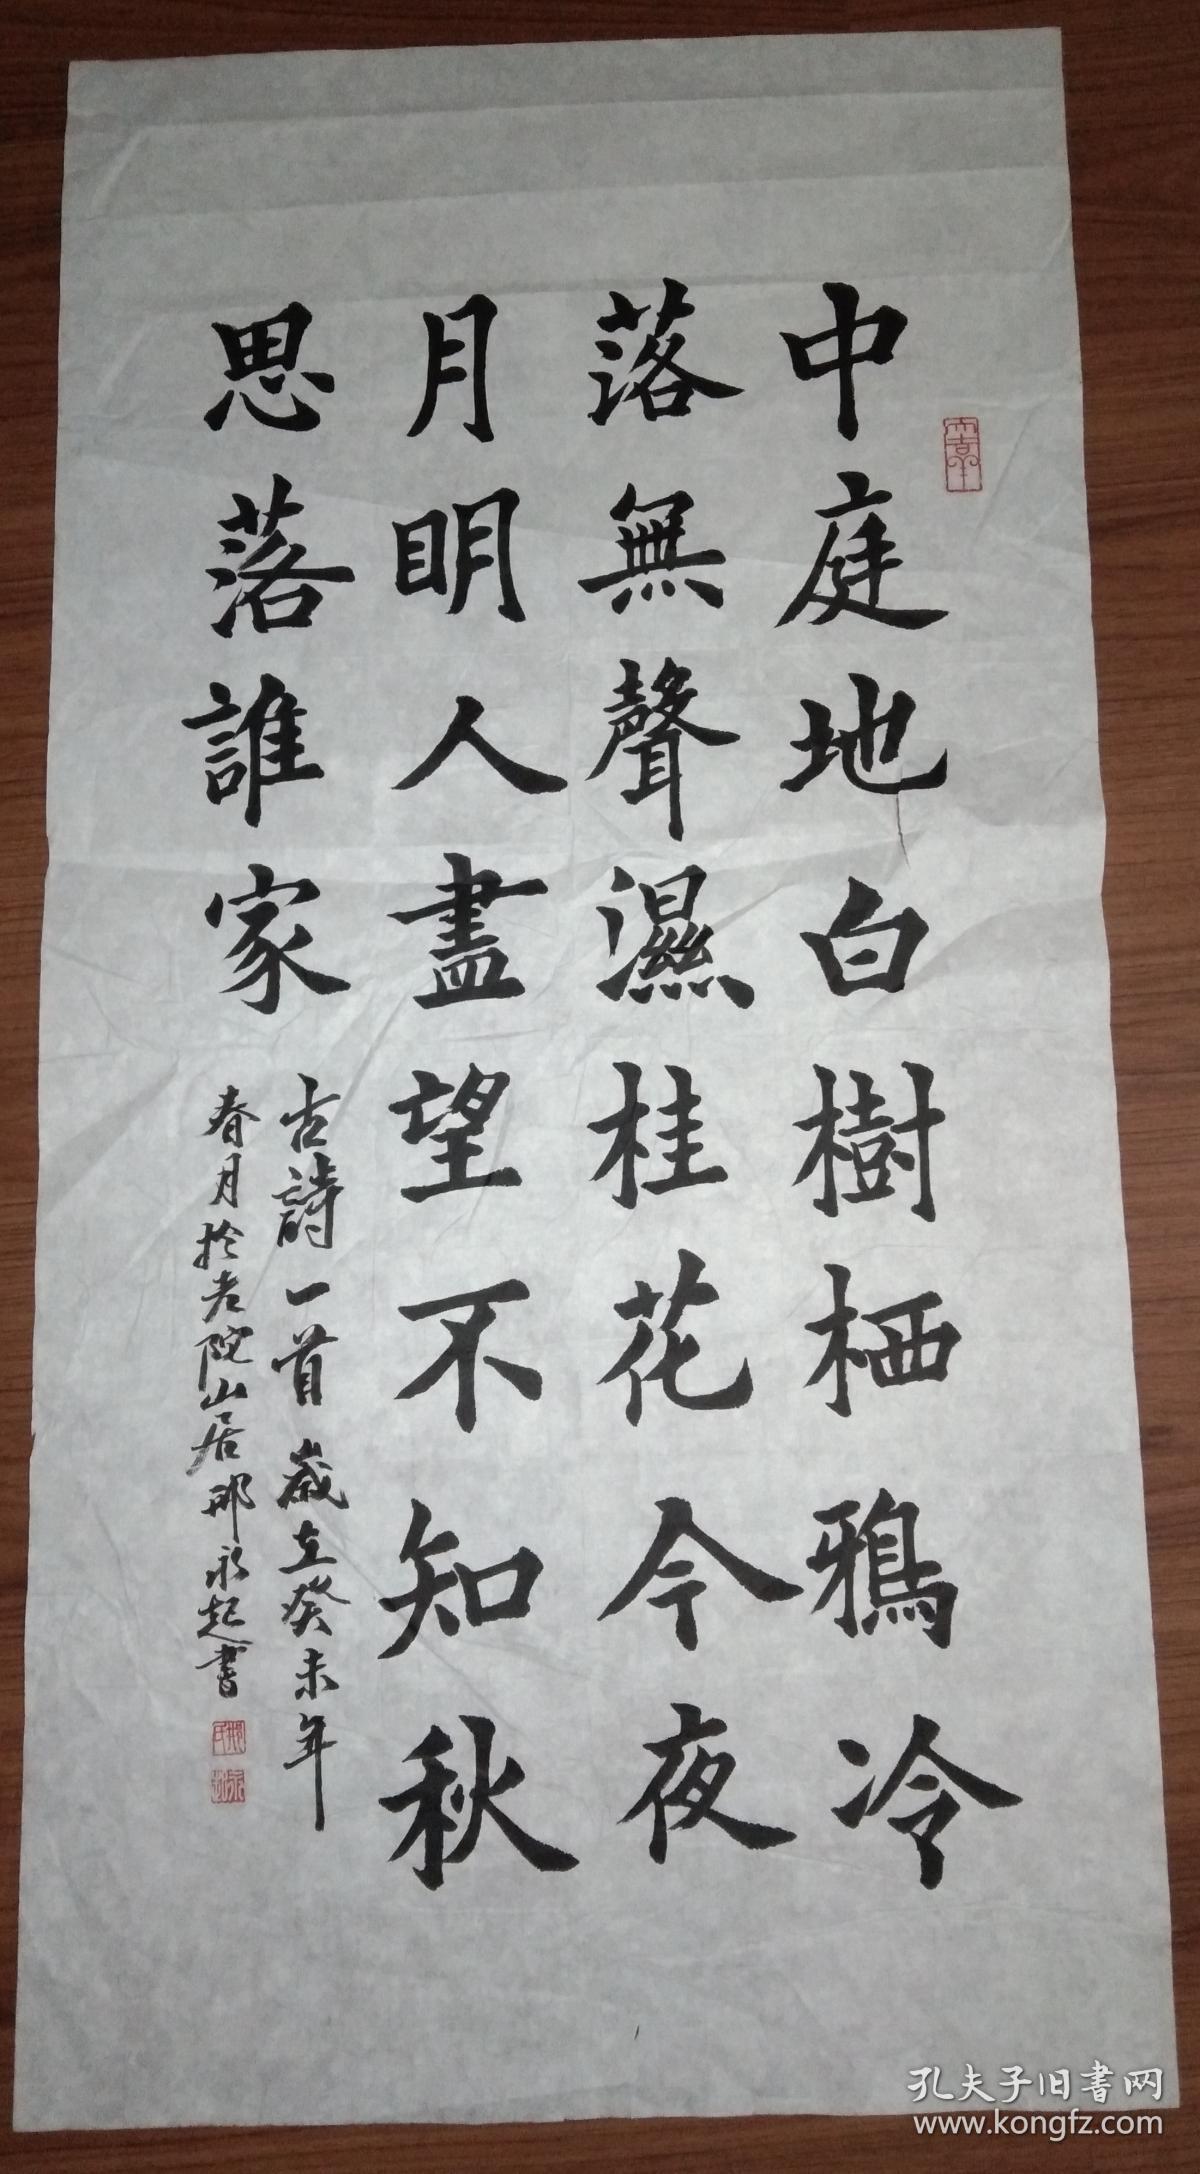 中庭地白樹栖鴉冷
落無聲濕桂花今夜
月明人盡望不知秋
思落誰家
古詩一首歲在癸未年
春月於老院山居邢永起書
孔夫子旧書网
www.kongfz.com